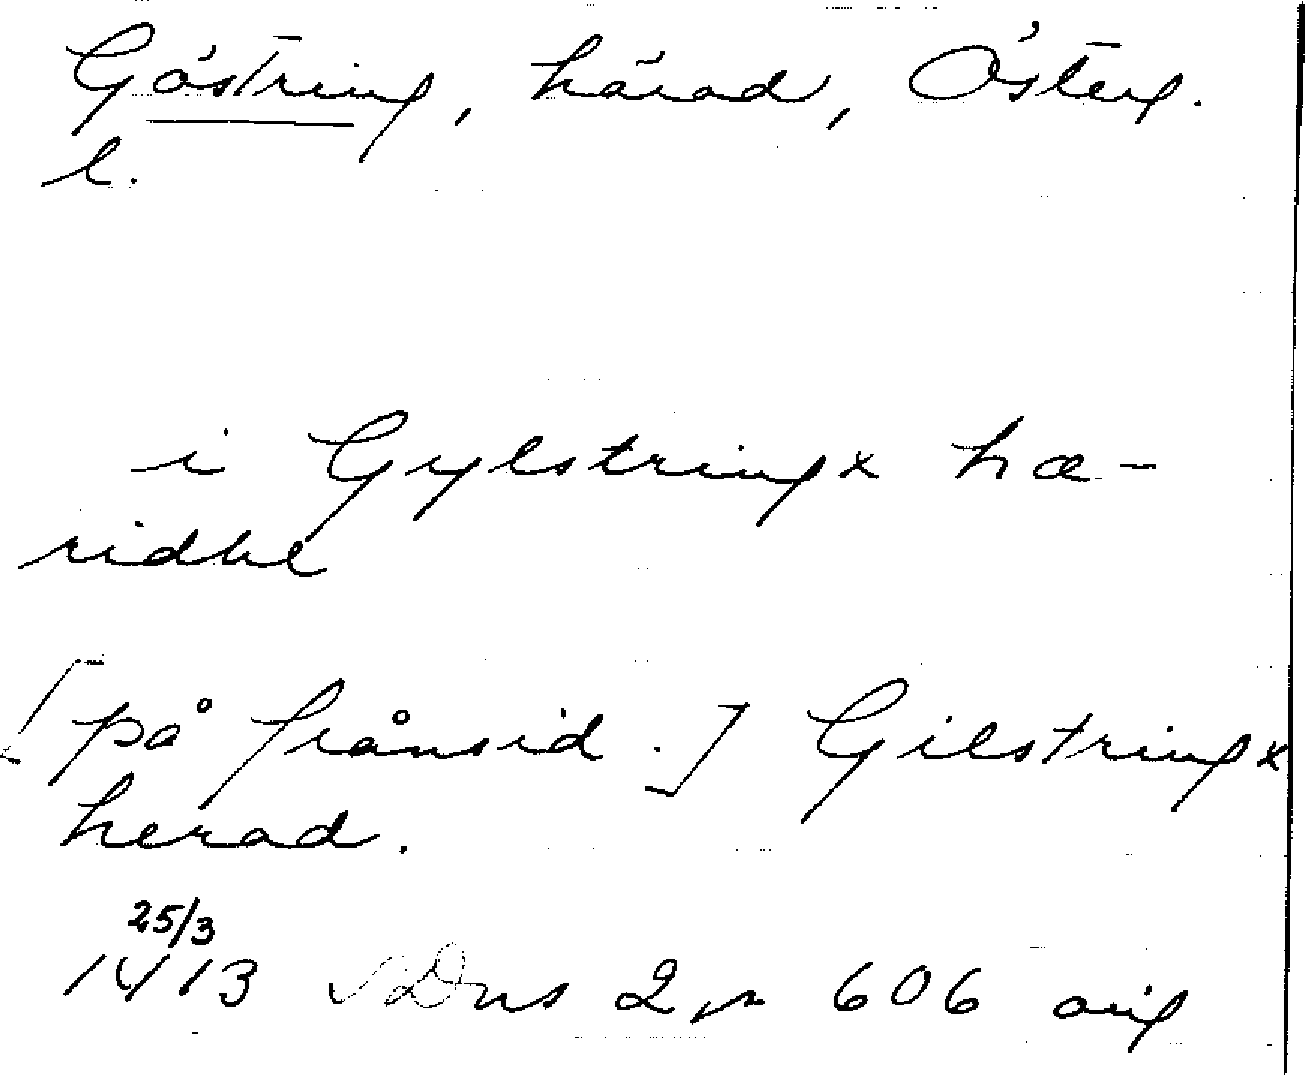 Göstring, härad, Österg.
l.
i Gylstringx hæ-
ridhe
[på frånsid.] Gilstringx
herad.
25/3
1413 SDns 2, nr 606 orig